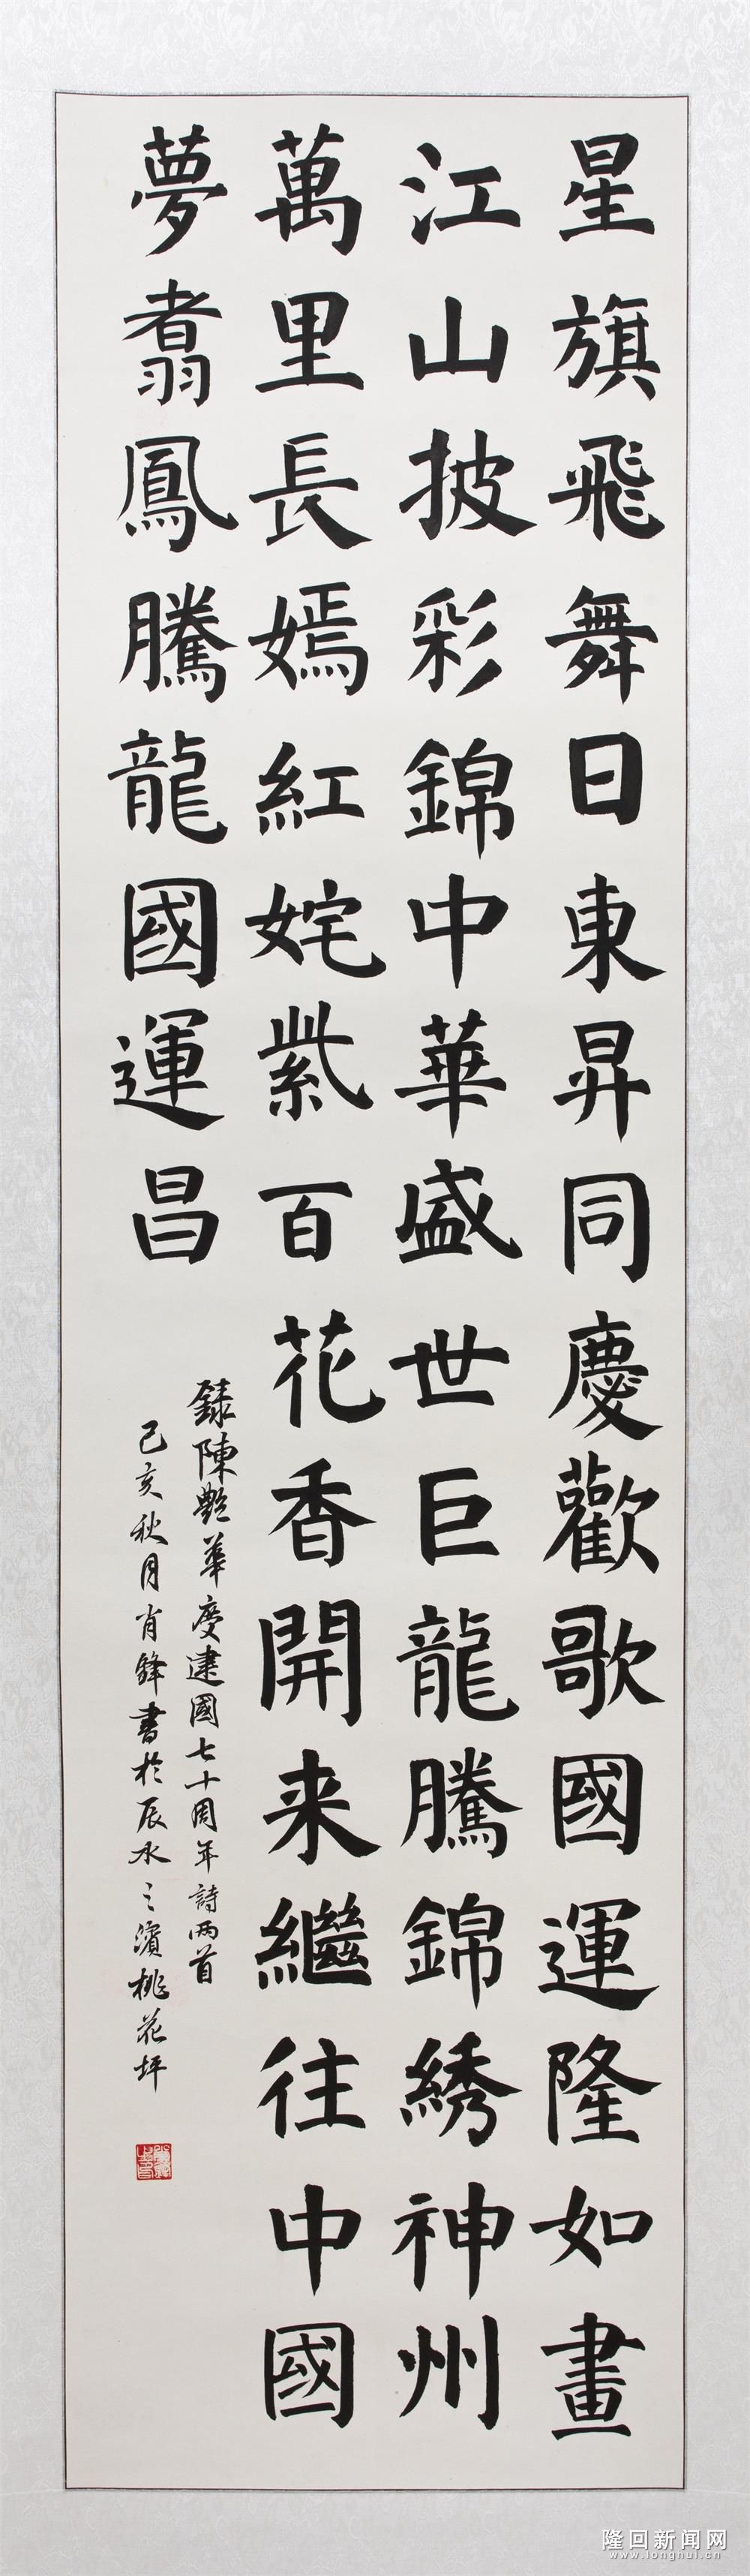 星旗飛舞日東昇同慶歡歌國運隆如畫
江山披彩錦中華盛世巨龍騰錦綉神州
萬里長嫣紅姹紫百花香開来繼往中國
夢翥鳳騰龍國運昌
録陳艷華慶建國七十周年詩两首
己亥秋月肖鋒書於辰水之濱桃花坪
隆回新闻网
www.longhui.cn